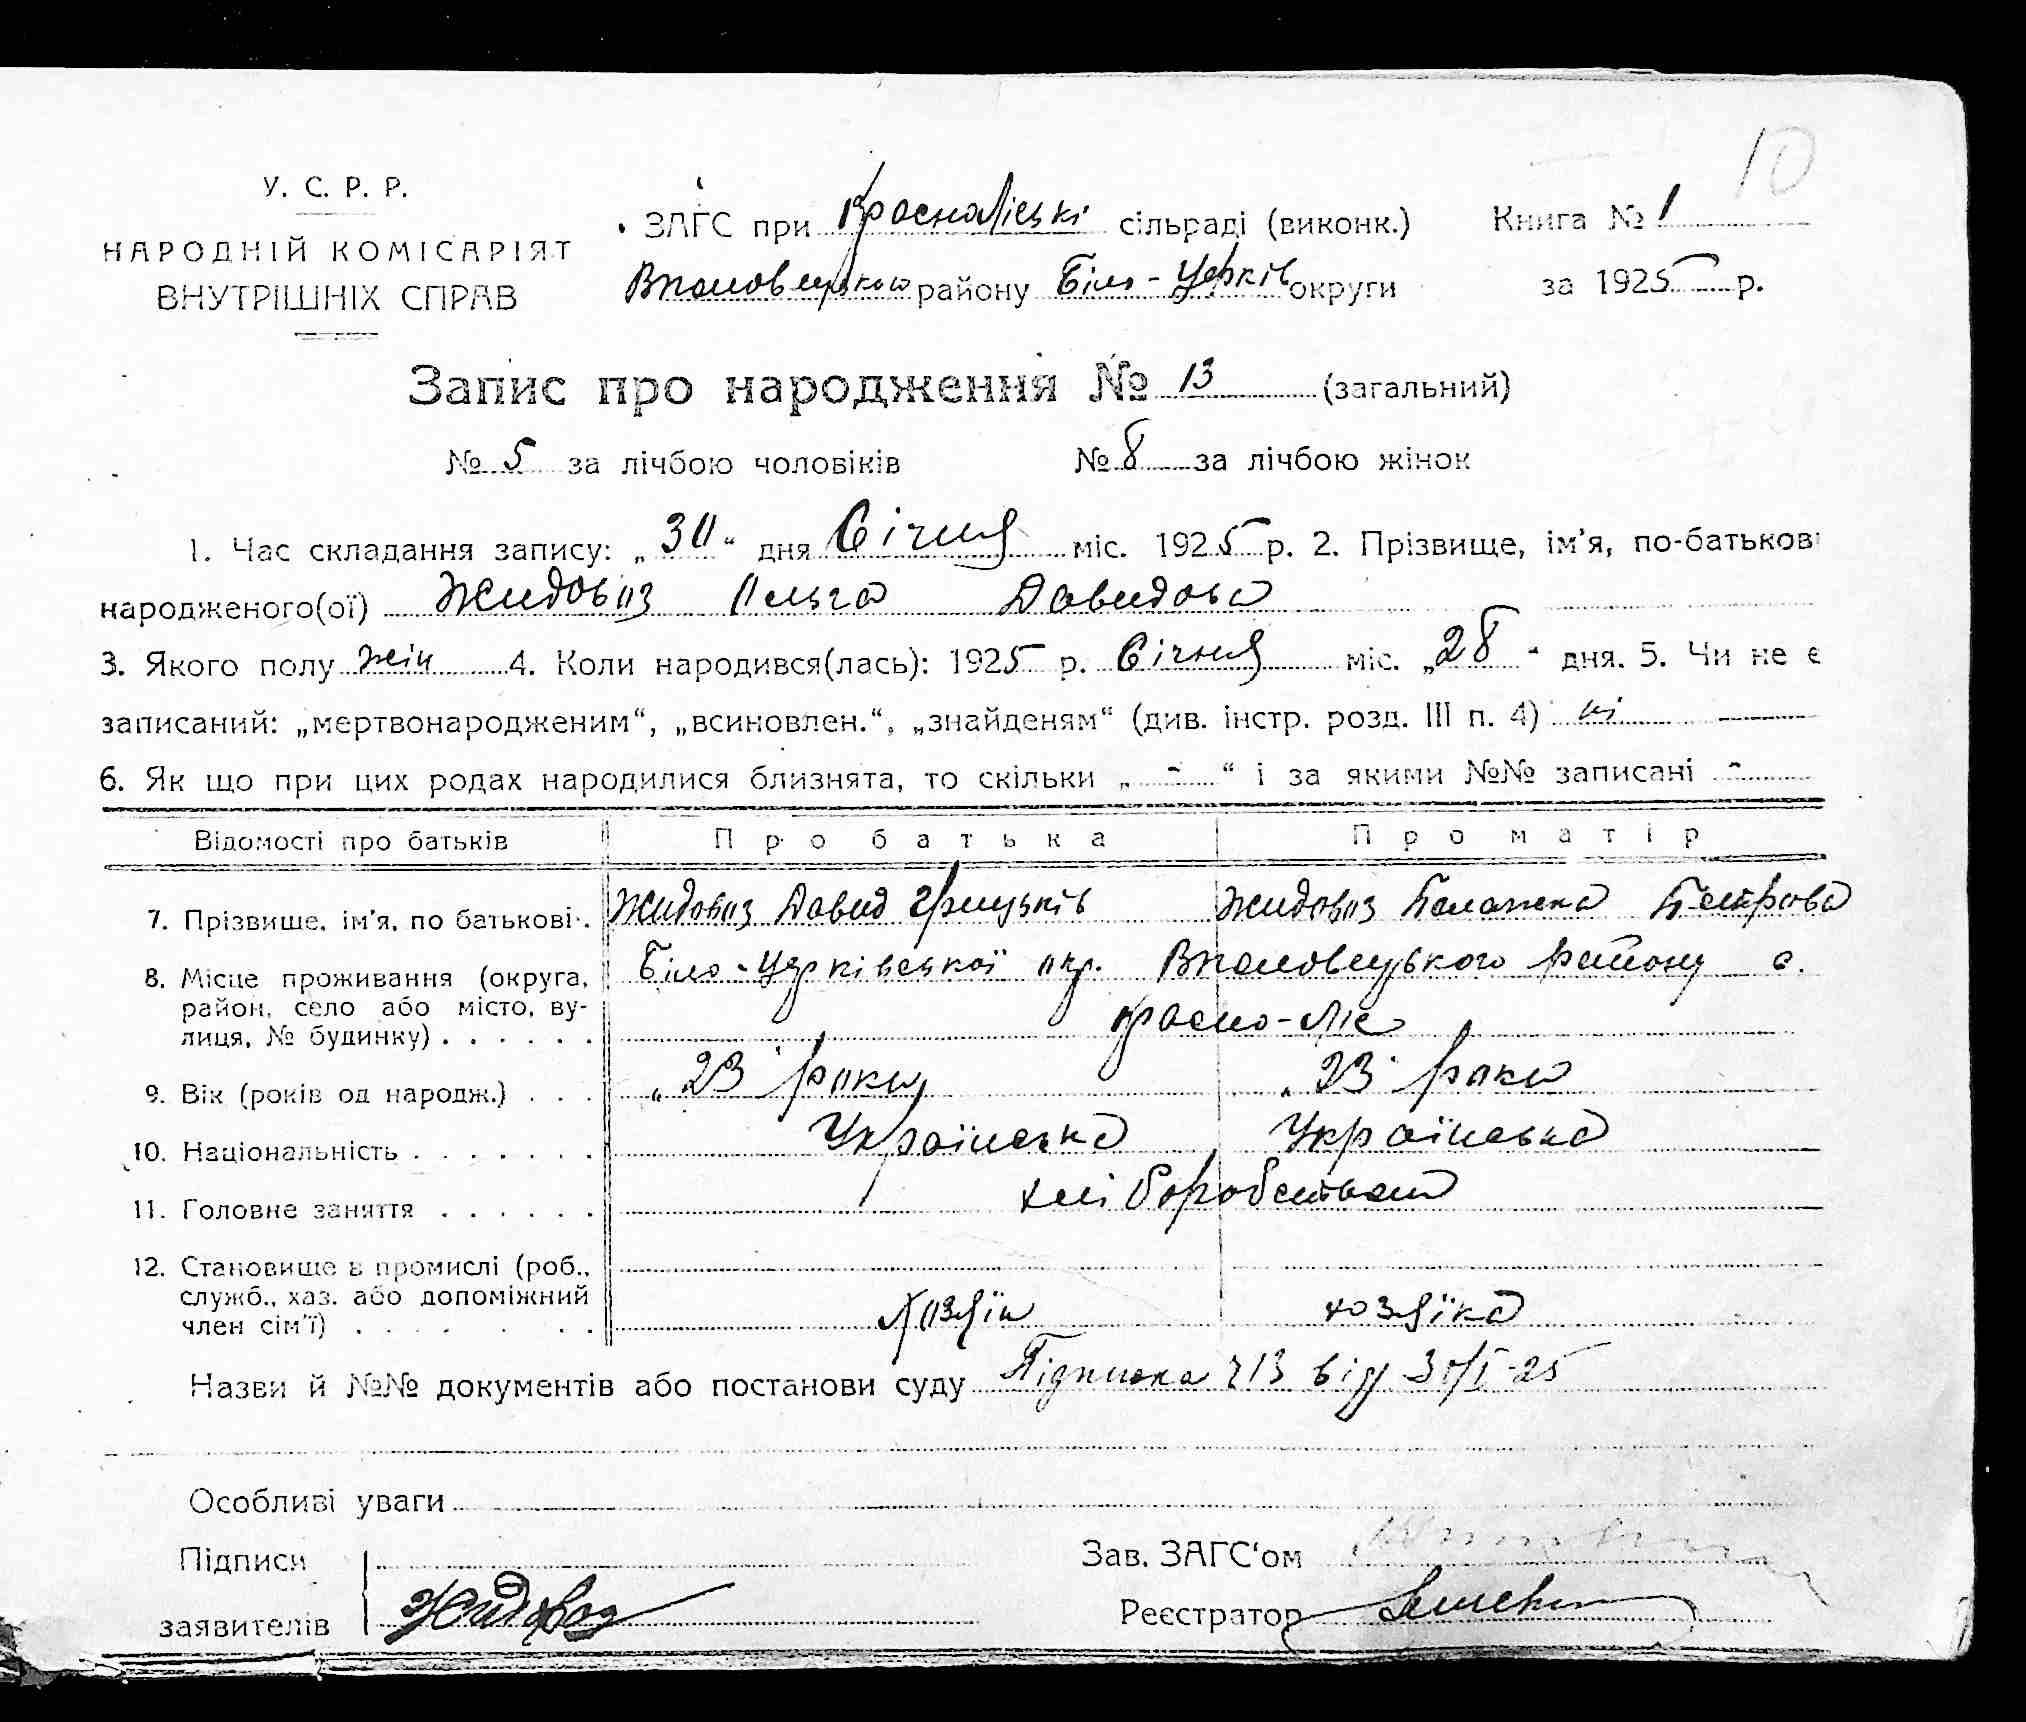 10
У. С. Р. Р.
НАРОДНІЙ КОМІСАРІЯТ
ВНУТРІШНІХ СПРАВ
ЗАГС при Красноліські сільраді (виконк.)
Книга № 1
району Біло-Церків округи
за 1925 р.
Запис про народження № 13 (загальний)
№ 5 за лічбою чоловіків № 8 за лічбою жінок
1. Час складання запису: „30“ дня Січня міс. 1925 р. 2. Прізвище, ім'я, по-батькові
народженого(ої) Жидовоз Ольга Давидова
3. Якого полу жін 4. Коли народився(лась): 1925 р. Січня міс. „28“ дня. 5. Чи не є
записаний: „мертвонародженим“, „всиновлен.“, „знайденям“ (див. інстр. розд. III п. 4) ні
6. Як що при цих родах народилися близнята, то скільки „ - “ і за якими №№ записані -
Відомості про батьків Про батька Про матір
7. Прізвище, ім'я, по батькові. Жидовоз Давид Грицьків Жидовоз Палажка Петрова
8. Місце проживання (округа, Біло-Церківської окр. району с.
район, село або місто, ву- Красно-Ліс
лиця, № будинку) . . . . . .
9. Вік (років од народж.) . . . „23“ роки „23“ роки
10. Національність . . . . . . . Українська Українська
11. Головне заняття . . . . . . хліборобство
12. Становище в промислі (роб.,
служб., хаз. або допоміжний
член сім'ї) . . . . . . . Хозяїн хозяїка
Назви й №№ документів або постанови суду Підписка ч 13 від 30/I-25
Особливі уваги
Підписи
Зав. ЗАГС'ом
заявителів Жидовоз
Реєстратор